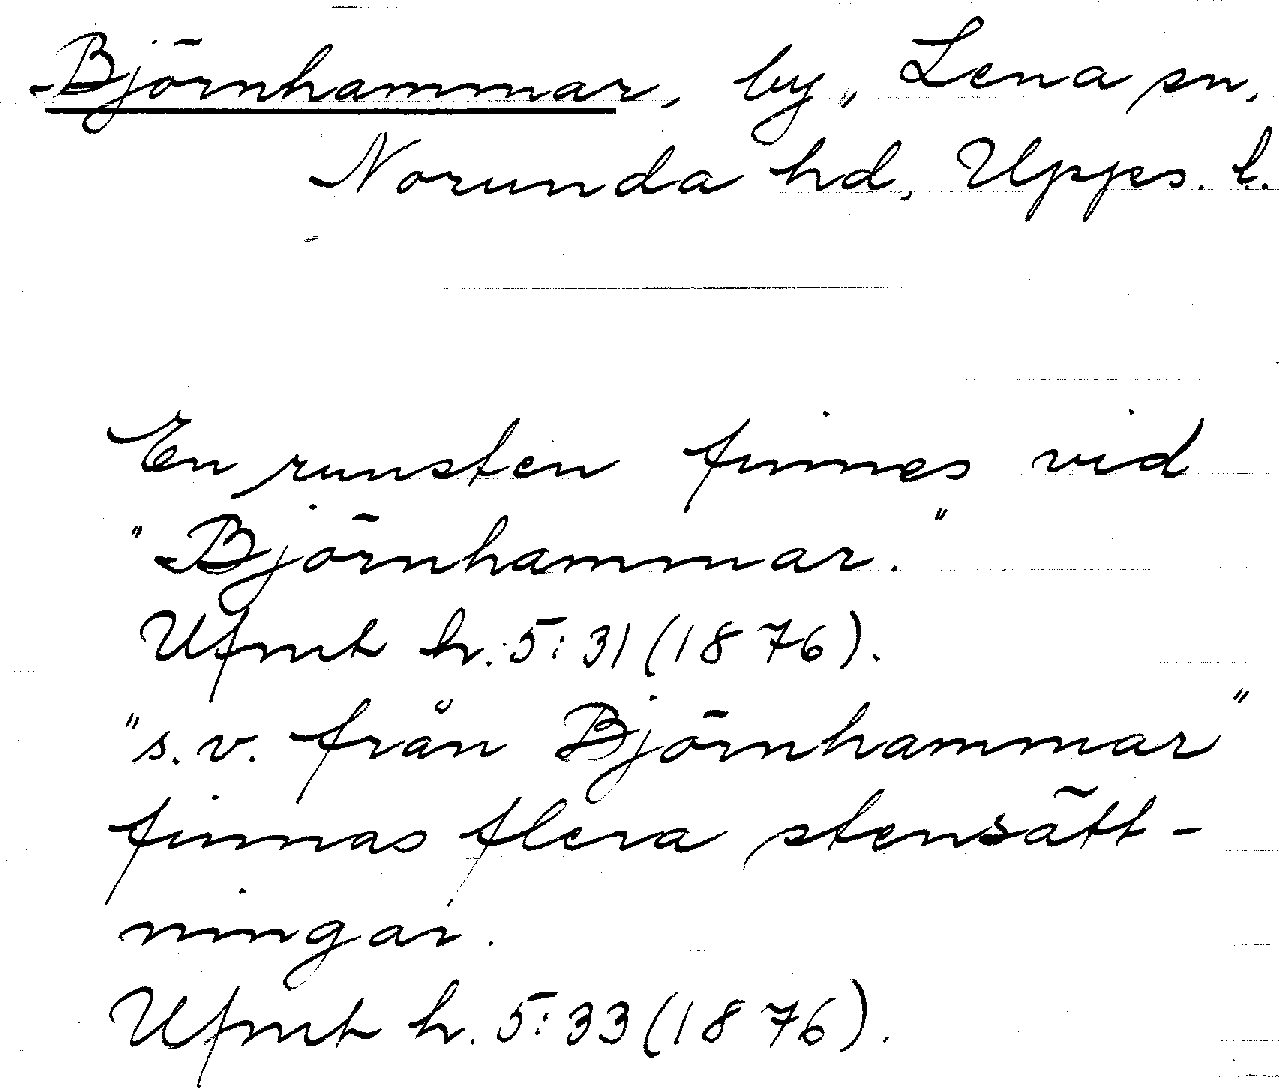 Björnhammar, by, Lena sn,
Norunda hd, Upps. l.
En runsten finnes vid
"Björnhammar."
Ufmt h. 5:31 (1876).
"s.v. från Björnhammar"
finnas flera stensätt-
ningar.
Ufmt h. 5:33 (1876).